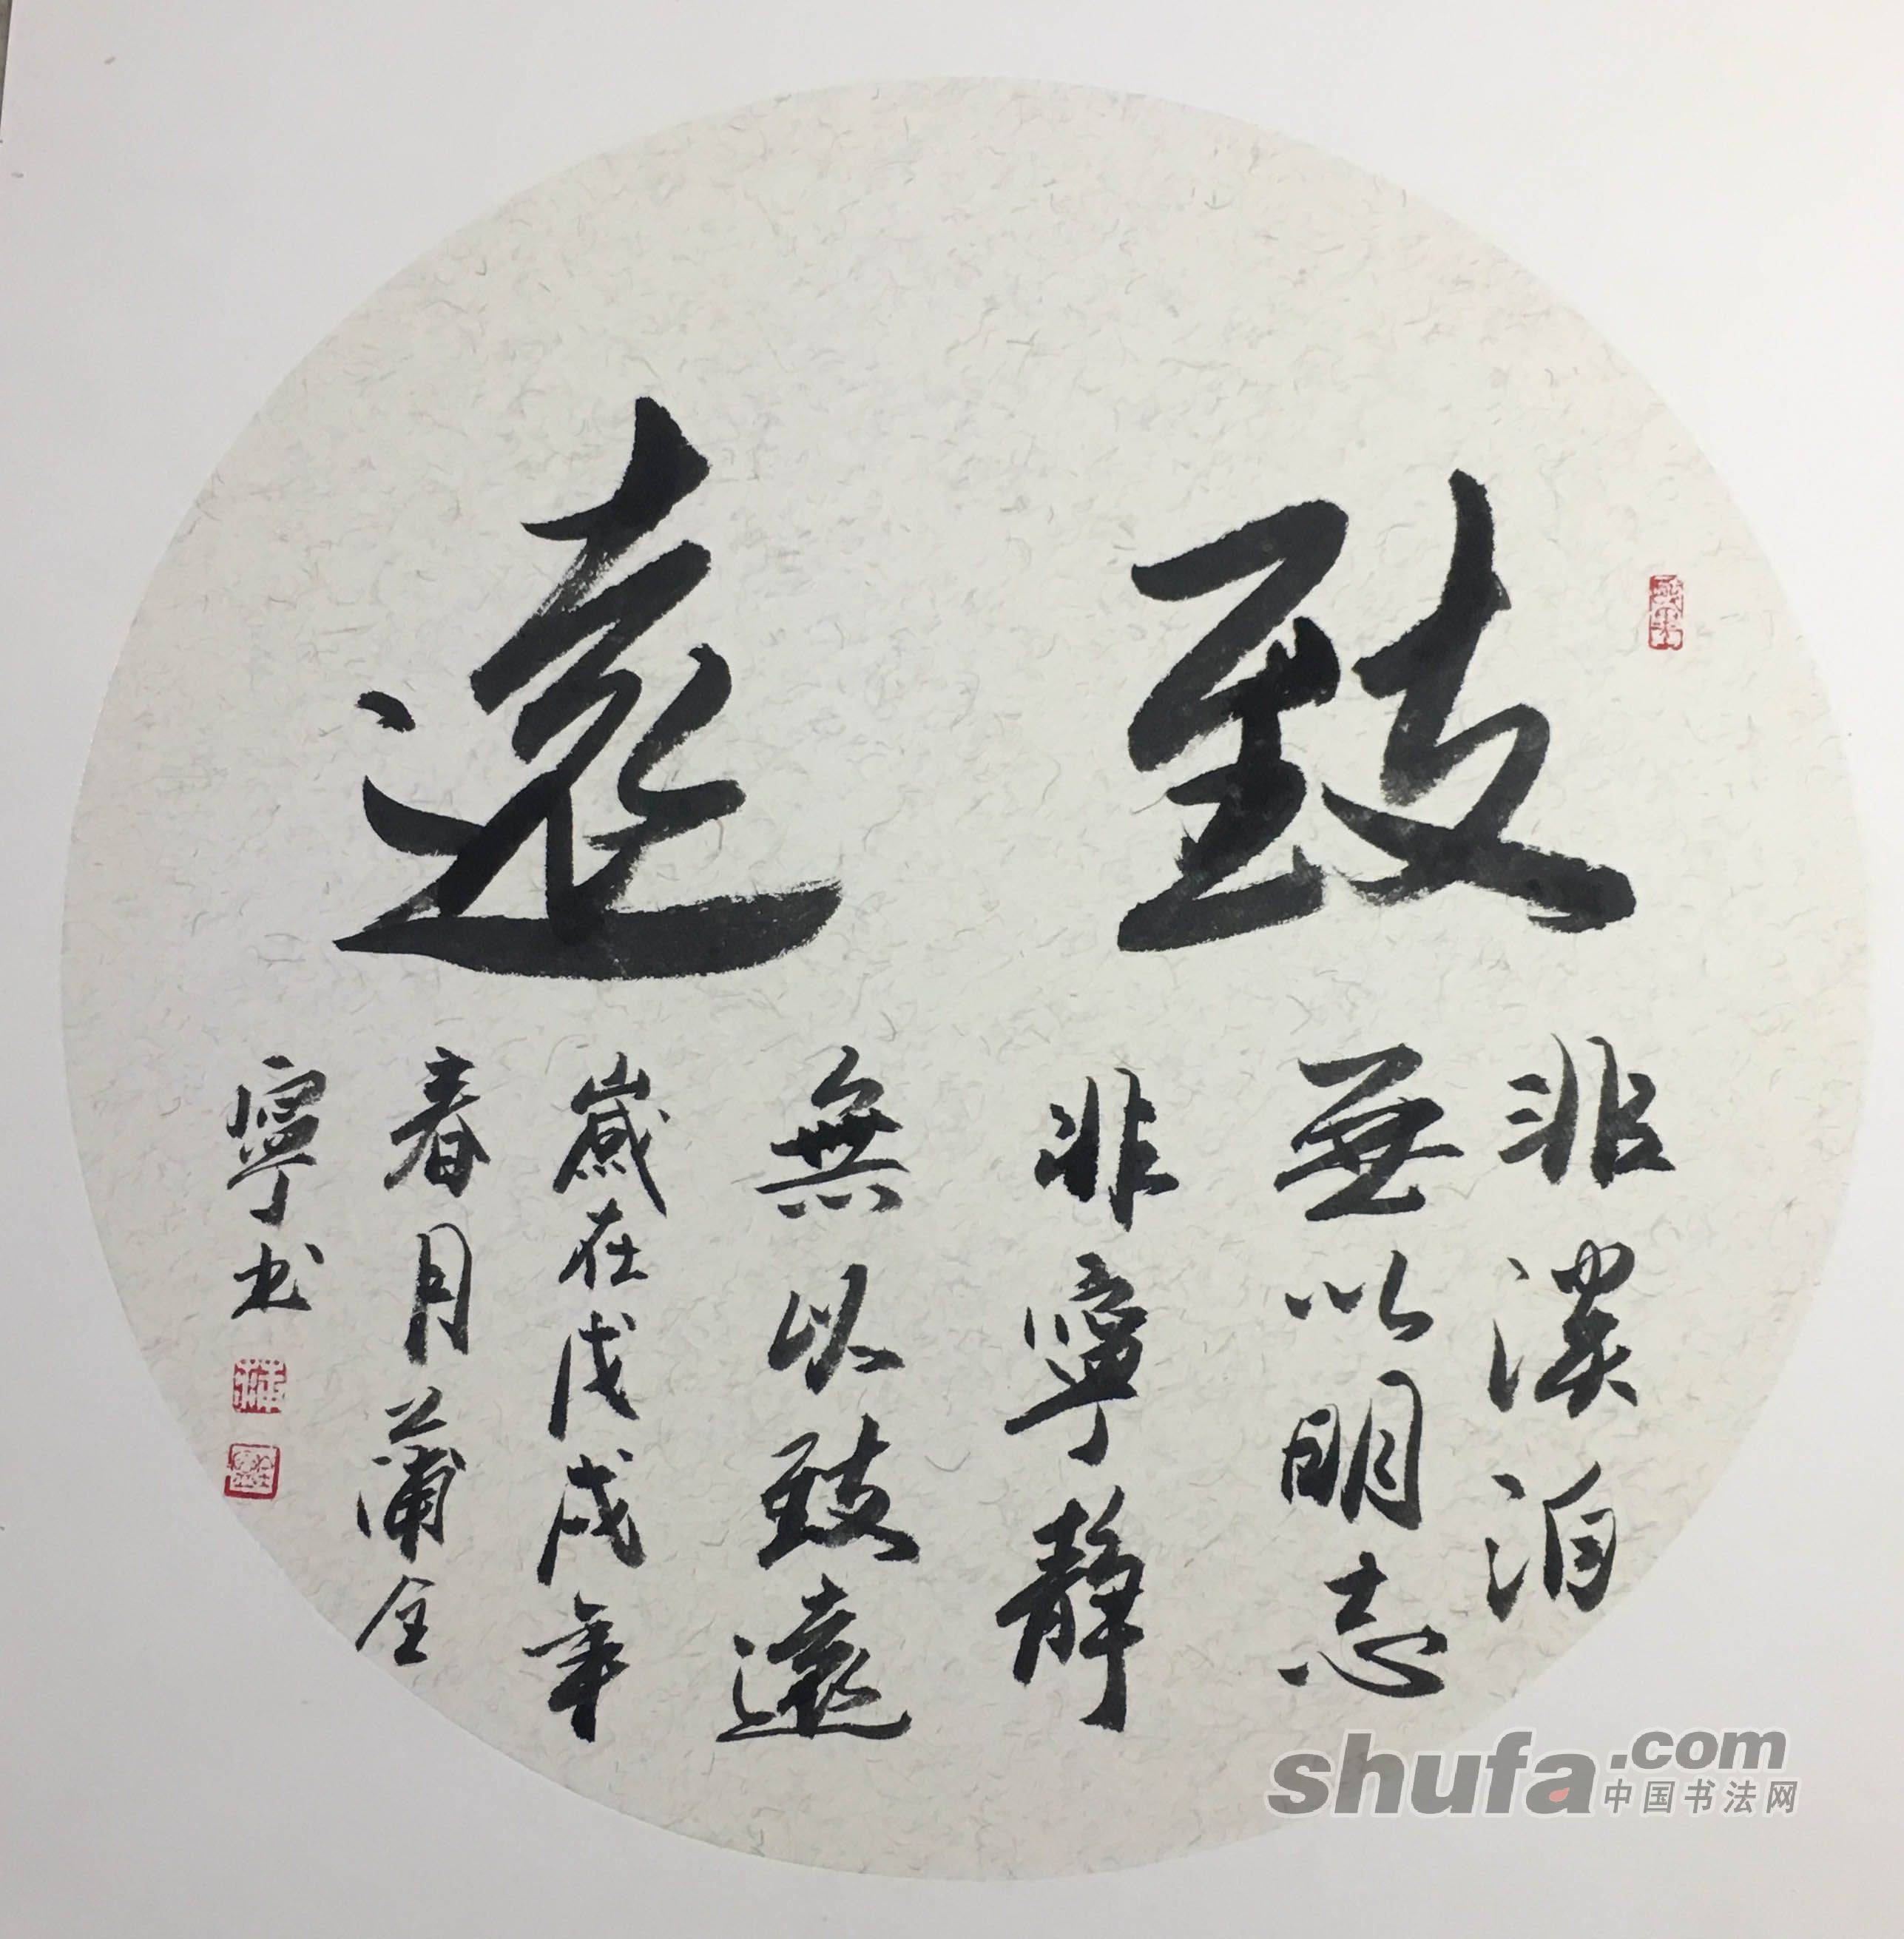 致遠
非淡泊
無以明志
非寧靜
無以致遠
歲在戊戌年
春月蒲全
寧书
shufa.com
中国书法网